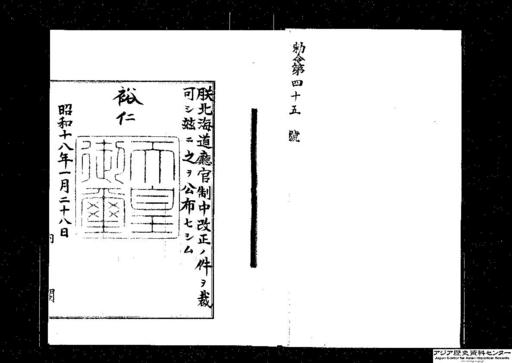 勅令第四十五號
朕北海道廳官制中改正ノ件ヲ裁
可シ玆ニ之ヲ公布セシム
裕仁
天皇
御璽
昭和十八年一月二十八日
内閣
アジア歴史資料センター
Japan Center for Asian Historical Records